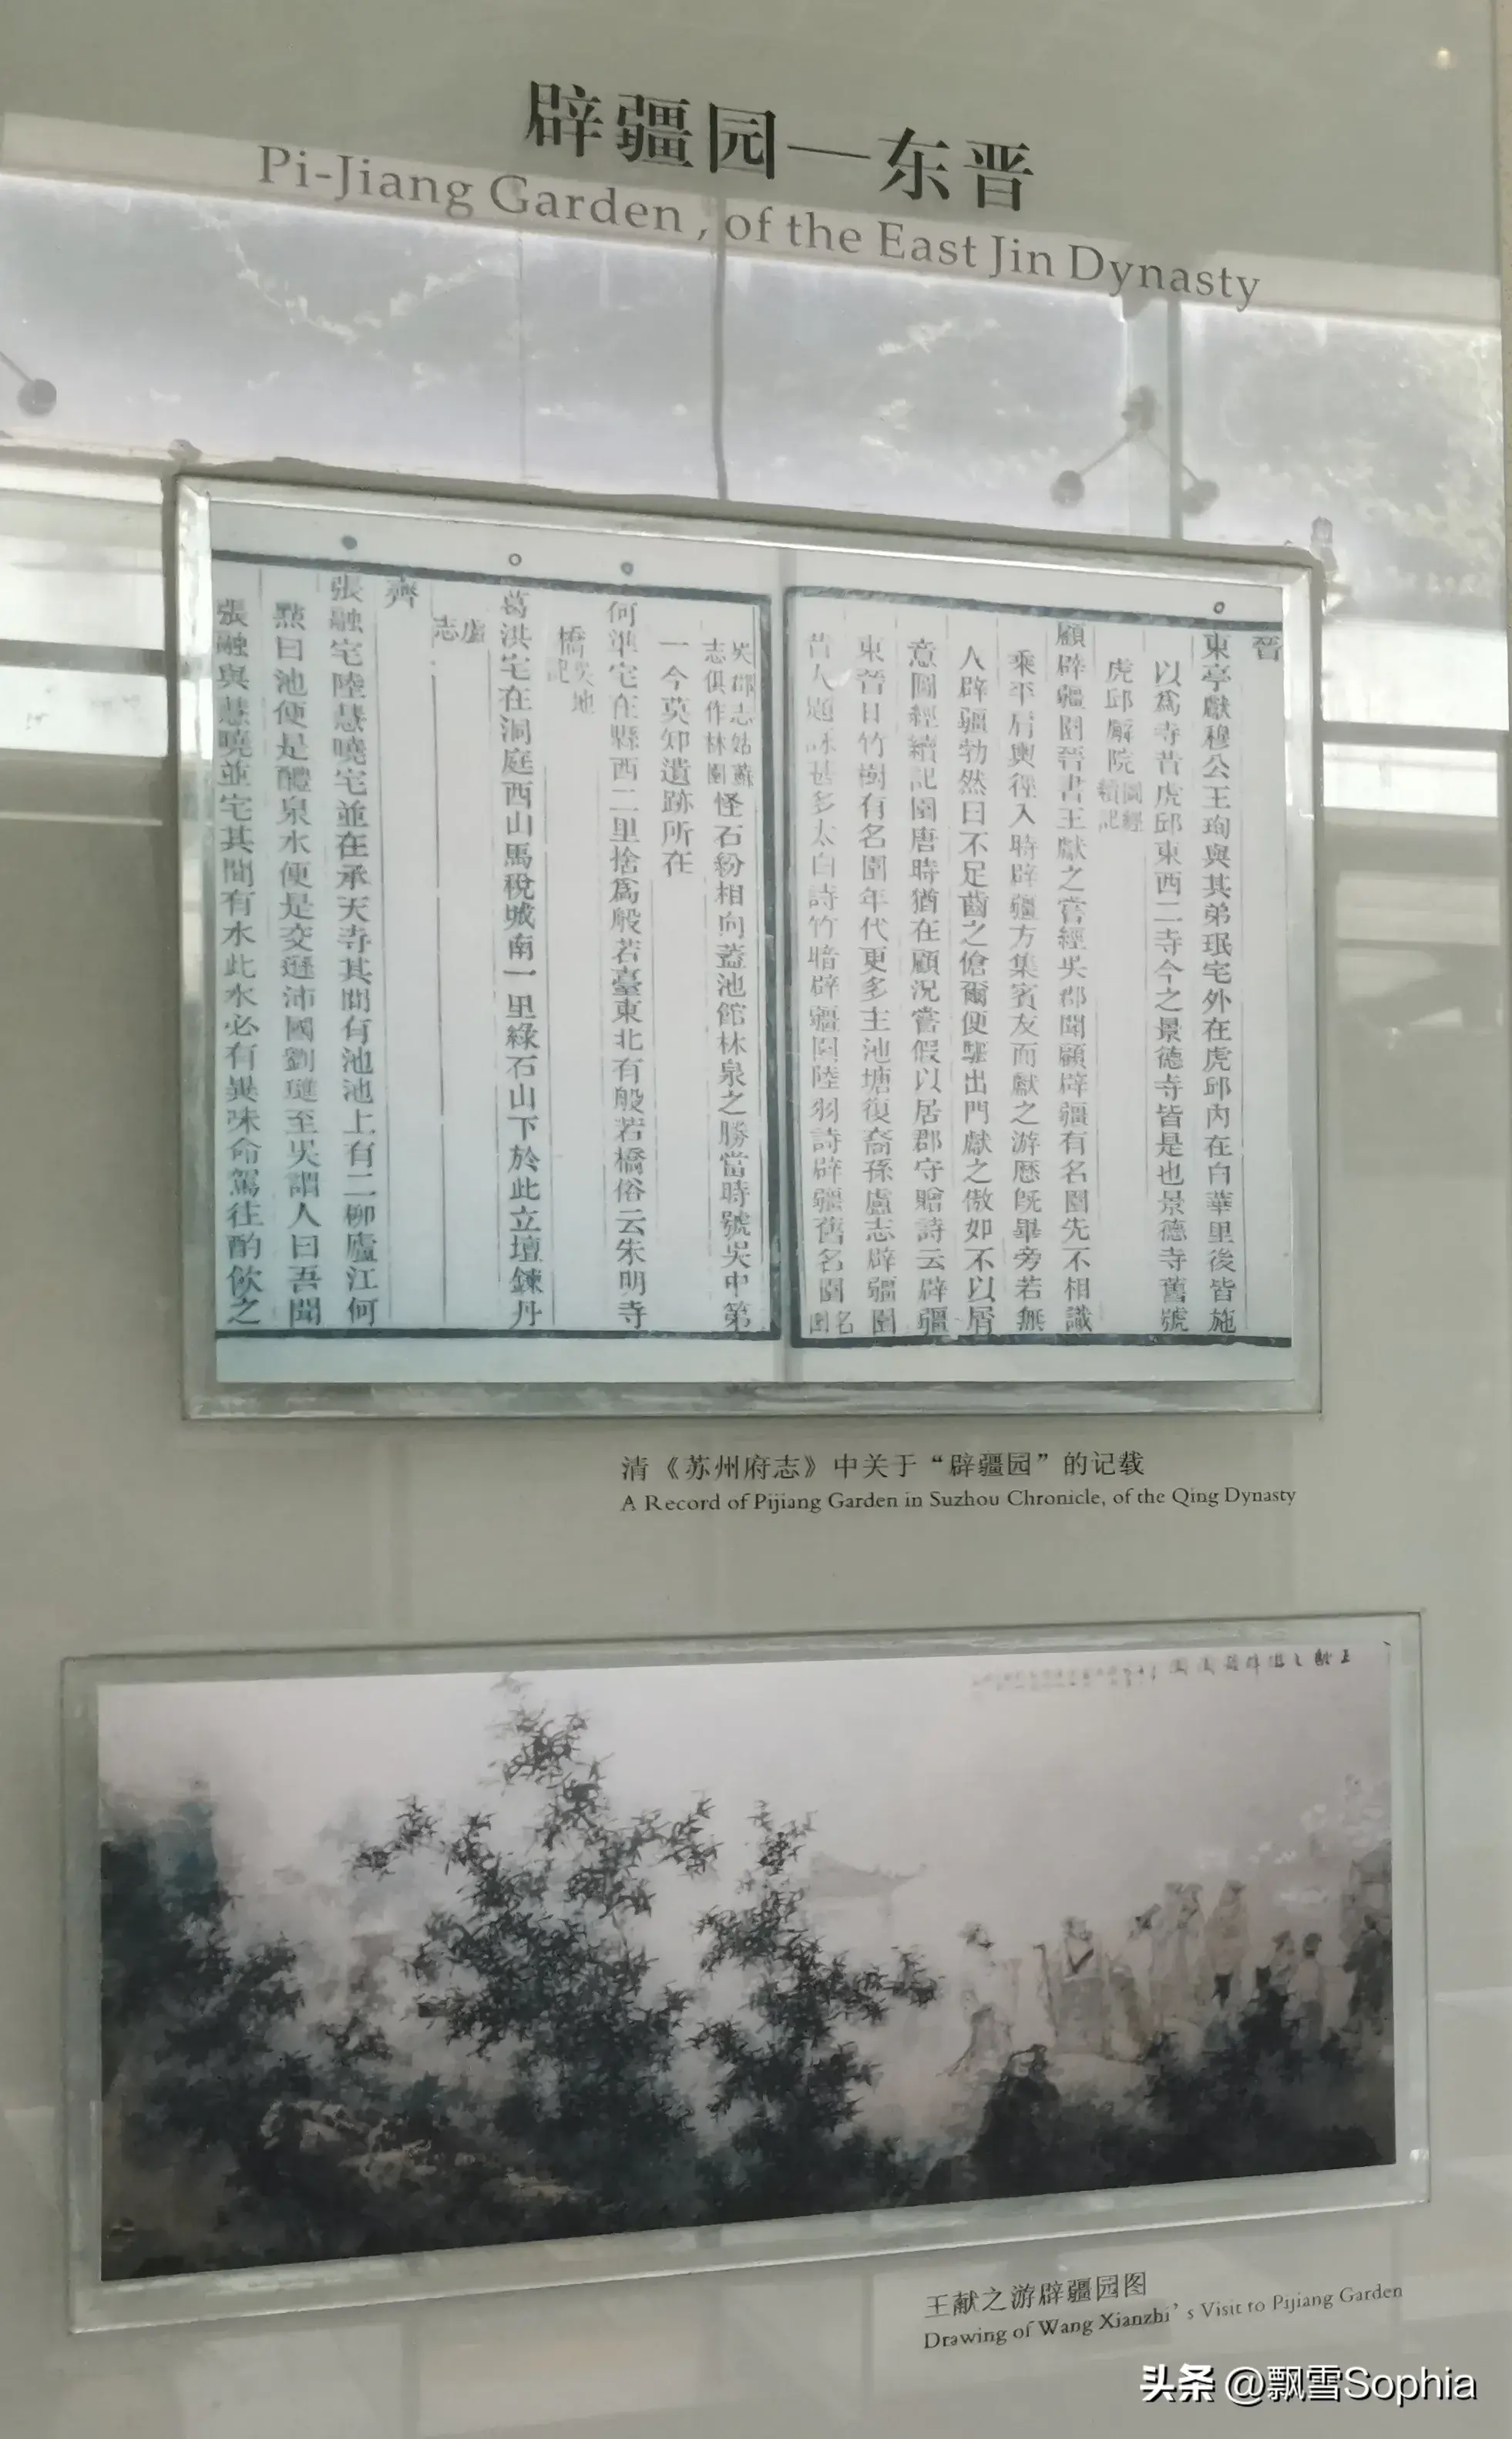 辟疆园—东晋
Pi-Jiang Garden, of the East Jin Dynasty
晉
東亭獻穆公王珣與其弟珉宅外在虎邱內在白華里後皆施
以爲寺昔虎邱東西二寺今之景德寺皆是也景德寺舊號
虎邱廨院圖經續記
顧辟疆園晉書王獻之嘗經吳郡聞顧辟疆有名園先不相識
乘平肩輿徑入時辟疆方集賓友而獻之游歷旣畢旁若無
人辟疆勃然曰不足齒之傖爾便驅出門獻之傲如不以屑
意圖經續記園唐時猶在顧況嘗假以居郡守贈詩云辟疆
東晉日竹樹有名園年代更多主池塘復裔孫盧志辟疆園
昔人題詠甚多太白詩竹暗辟疆園陸羽詩辟疆舊名園名園
吳郡志姑蘇志俱作林園怪石紛相向蓋池館林泉之勝當時號吳中第
一今莫知遺跡所在
何準宅在縣西二里捨爲般若臺東北有般若橋俗云朱明寺
橋吳地記
葛洪宅在洞庭西山馬稅城南一里綠石山下於此立壇鍊丹
盧志
齊
張融宅陸慧曉宅並在承天寺其間有池池上有二柳廬江何
點曰池便是醴泉水便是交遜沛國劉璡至吳謂人曰吾聞
張融與慧曉並宅其間有水此水必有異味命駕往酌飲之
清《苏州府志》中关于“辟疆园”的记载
A Record of Pijiang Garden in Suzhou Chronicle, of the Qing Dynasty
王献之游辟疆园图
Drawing of Wang Xianzhi's Visit to Pijiang Garden
头条 @飘雪Sophia